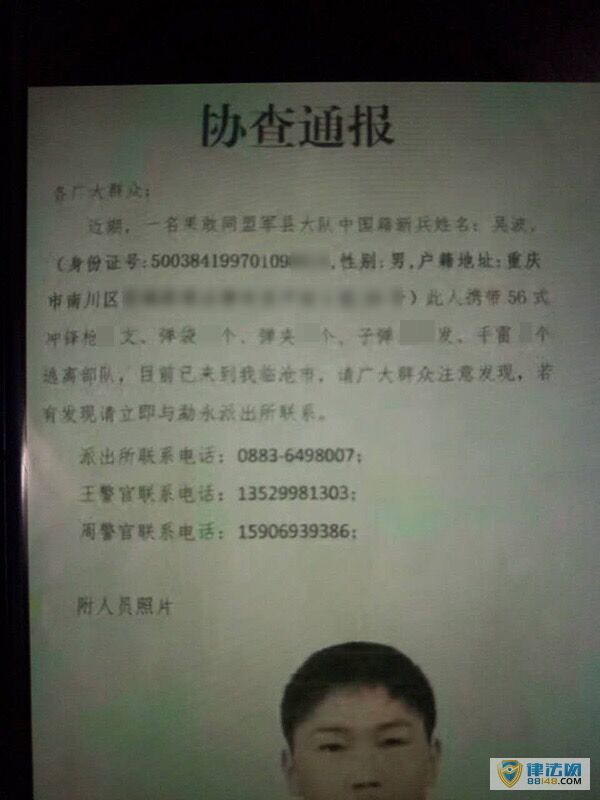 协查通报
各广大群众：
近期，一名果敢同盟军县大队中国籍新兵姓名：吴波，
（身份证号:50038419970109,性别：男,户籍地址:重庆
市南川区）此人携带56式
冲锋枪 支、弹袋 个、弹夹 个、子弹 发、手雷 个
逃离部队，目前已来到我临沧市，请广大群众注意发现，若
有发现请立即与勐永派出所联系。
派出所联系电话：0883-6498007；
王警官联系电话：13529981303；
周警官联系电话：15906939386；
附人员照片
律法网
88148.COM